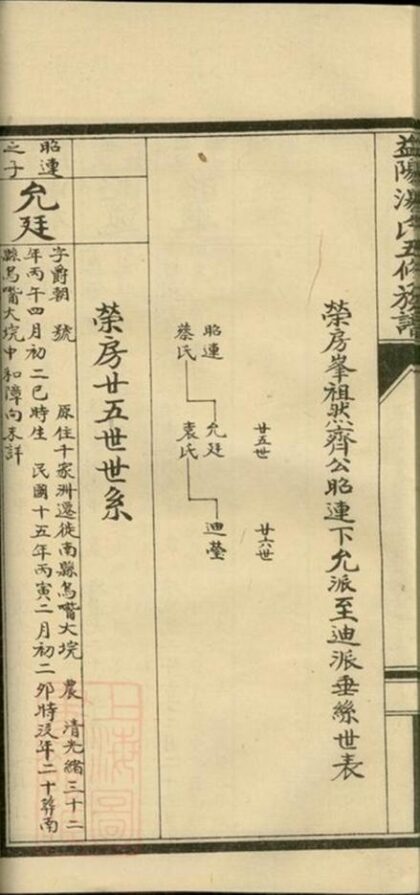 益陽湯氏五修族譜
榮房峯祖然齊公昭連下允派至迪派垂絲世表
廿五世
廿六世
昭連
蔡氏
允廷
袁氏
迪瑩
榮房廿五世世系
昭連
之子
允廷
字爵朝 號 原住千家洲遷徙南縣烏嘴大垸 農 清光緒三十二
年丙午四月初二巳時生 民國十五年丙寅二月初二卯時沒年二十葬南
縣烏嘴大垸中和障向未詳